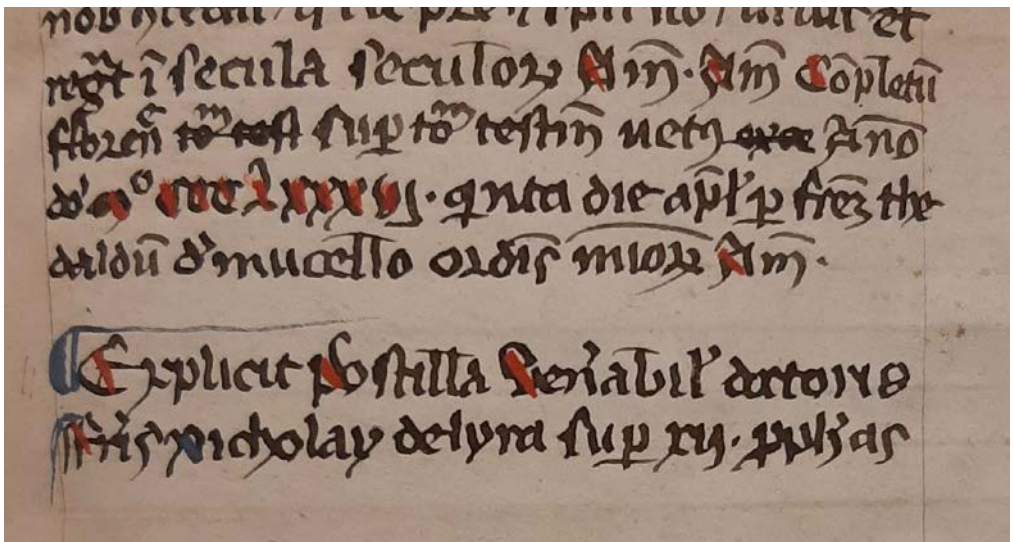 regͣt ī secula seculoꝝ Am̄. Am̄ Cōpletū
fflorēn toᵐ test supᵉ toᵐ testm̄ uetꝰ Anō
dı̄ mº ccc lxxxiij. qͥnta die apl' ꝑ frēꝫ the
daldū d' mucello ordīs mioꝝ Am̄.
Explicit postilla Uen'abil' doctoris
fr̄is nicholay de lyra suꝑ xij. ꝓphꝫas